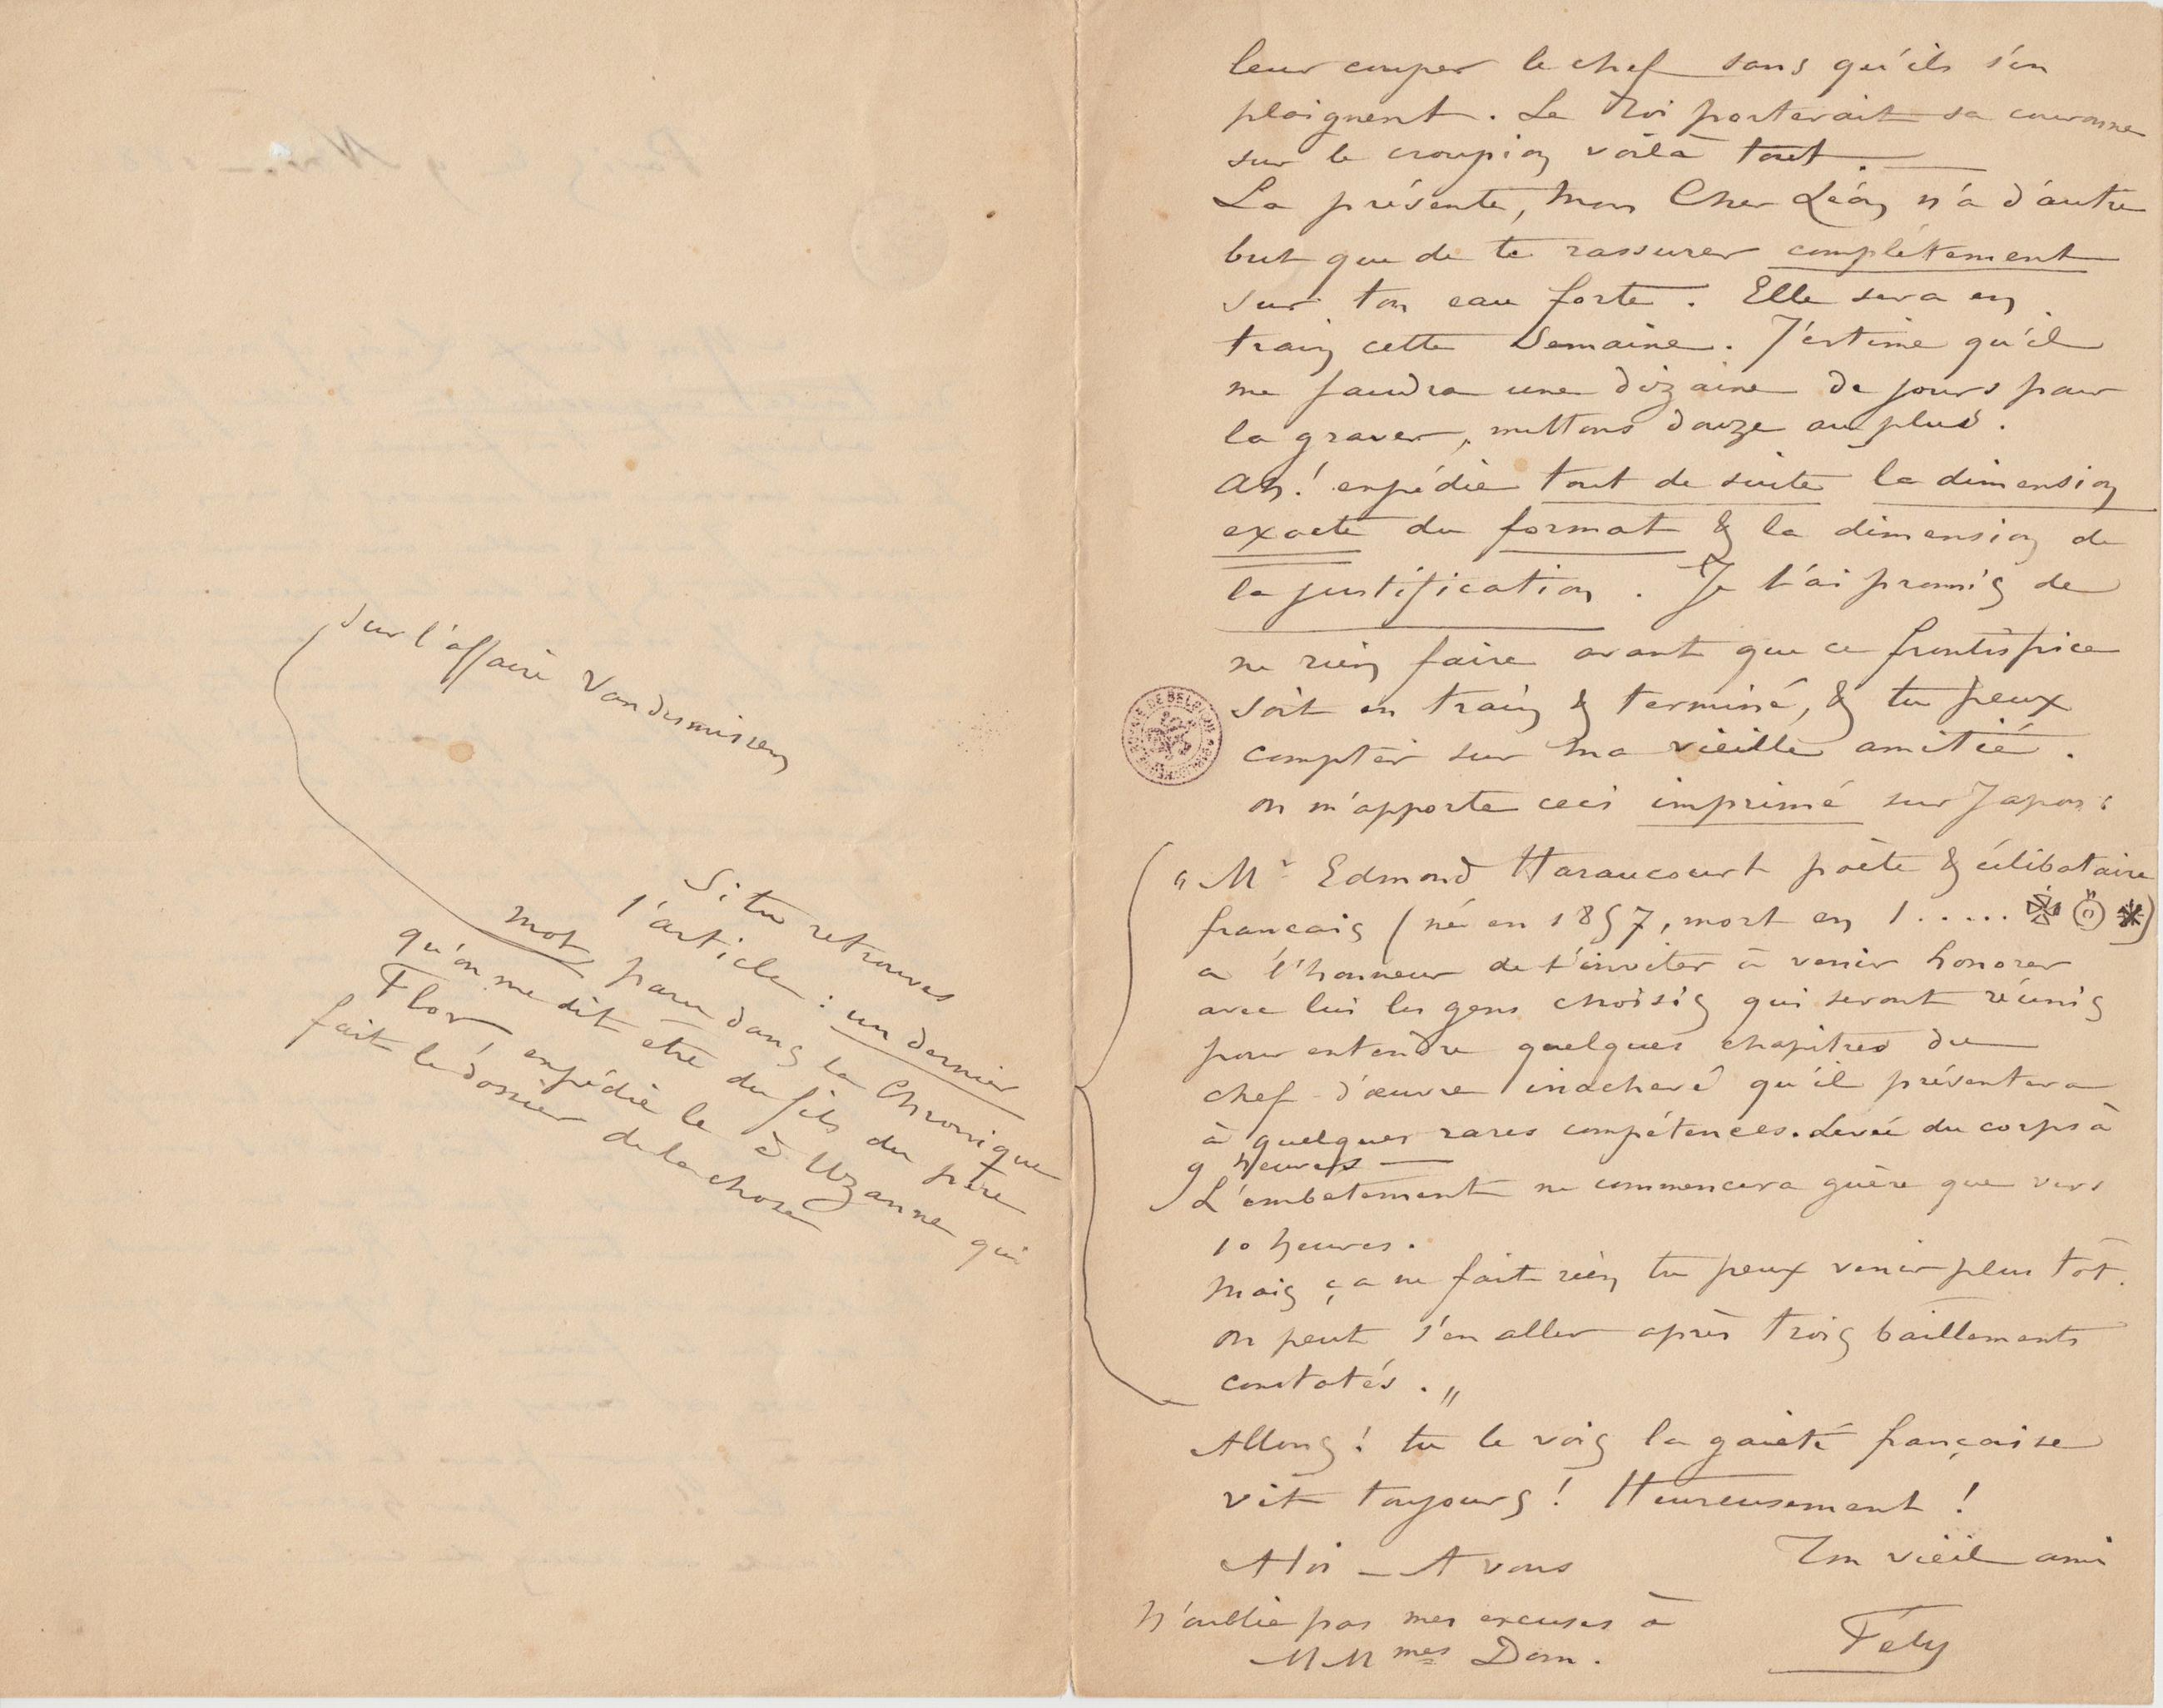 leur couper le chef sans qu'ils s'en
plaignent. Le Roi porterait sa couronne
sur le croupion voilà tout.
La présente, Mon Cher Léon n'a d'autre
but que de te rassurer complètement
sur ton eau forte. Elle sera en
train cette Semaine. J'estime qu'il
me faudra une dizaine de jours pour
la graver, mettons douze au plus.
Ah! expédie tout de suite la dimension
exacte du format & la dimension de
la justification. Je t'ai promis de
ne rien faire avant que ce frontispice
soit en train & terminé, & tu peux
compter sur ma vieille amitié.
on m'apporte ceci imprimé sur Japon:
"Mr Edmond Haraucourt poète & célibataire
français (né en 1857, mort en 1.....)
a l'honneur de t'inviter à venir honorer
avec lui les gens choisis qui seront réunis
pour entendre quelques chapitres du
chef d'œuvre inachevé qu'il présentera
à quelques rares compétences. Levée du corps à
9 heures —
L'embetement ne commencera guère que vers
10 heures.
Mais ça ne fait rien tu peux venir plus tôt.
on peut s'en aller après trois baillements
constatés."
Allons! tu le vois la gaieté française
vit toujours! Heureusement!
A toi — A vous
Ton vieil ami
Fély
N'oublie pas mes excuses à
MMmes Dom.
Si tu retrouves
l'article: un dernier
mot paru dans la Chronique
qu'on me dit être du fils du père
Flor, expédie le à Uzanne qui
fait le dossier de la chose
sur l'affaire Vandersmissen